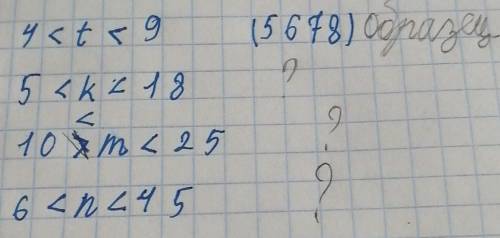 4 < t < 9 (5678) образец
5 < k < 18 ?
10 < m < 25 ?
6 < n < 45 ?